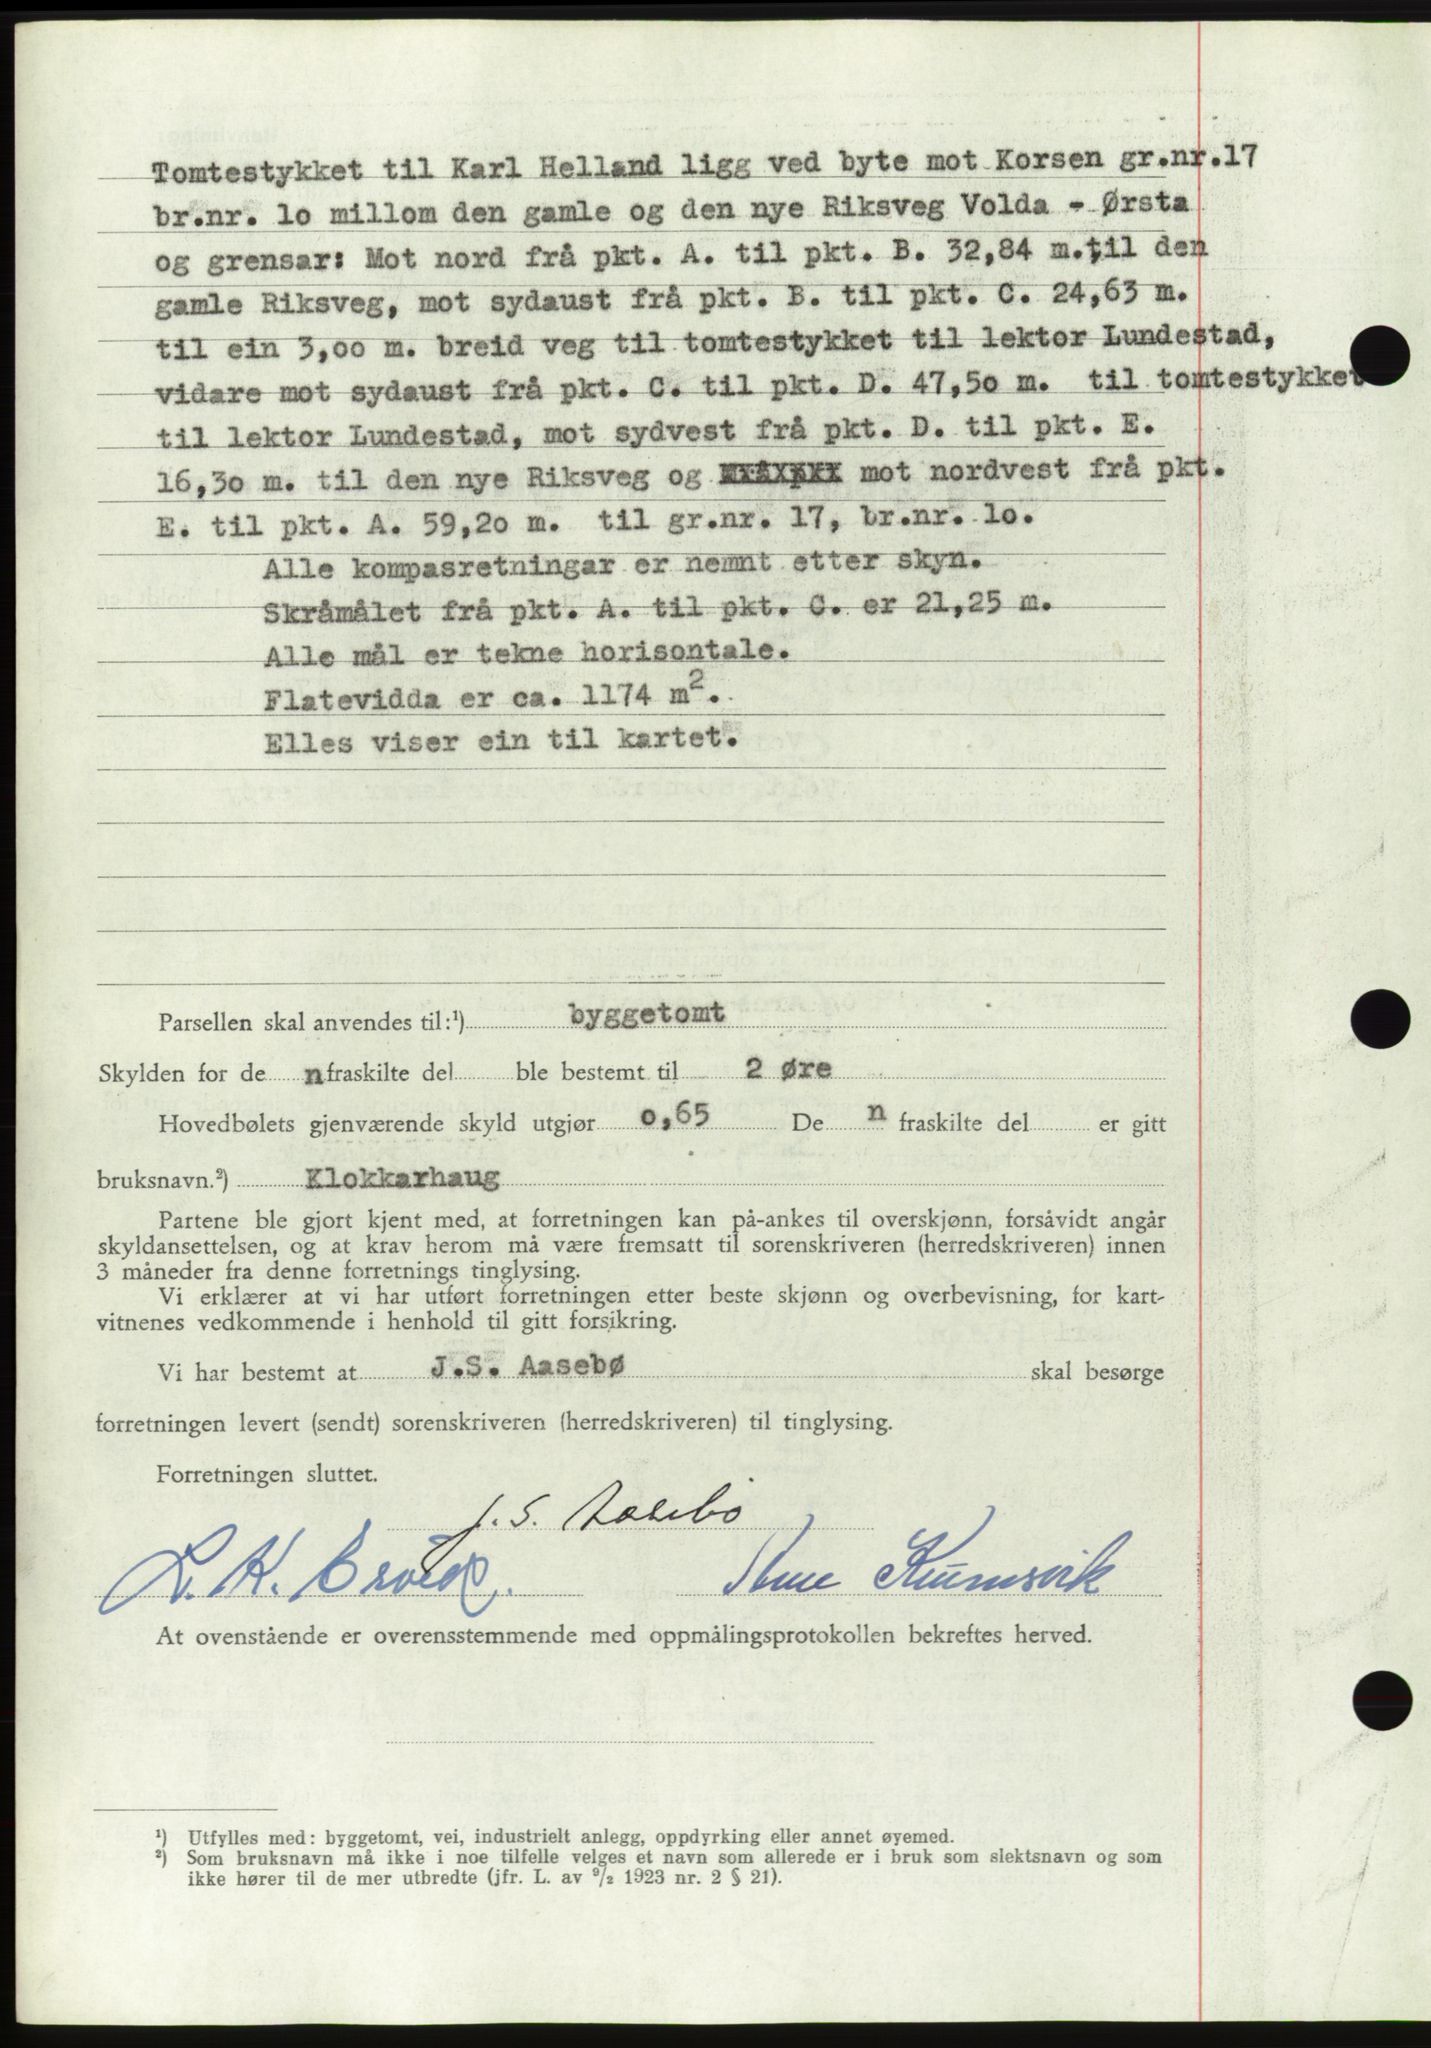 Tomtestykket til Karl Helland ligg ved byte mot Korsen gr.nr.17
br.nr. lo millom den gamle og den nye Riksveg Volda - Ørsta
og grensar: Mot nord frå pkt. A. til pkt. B. 32,84 m.til den
gamle Riksveg, mot sydaust frå pkt. B. til pkt. C. 24,63 m.
til ein 3,oo m. breid veg til tomtestykket til lektor Lundestad,
vidare mot sydaust frå pkt. C. til pkt. D. 47,5o m. til tomtestykket
til lektor Lundestad, mot sydvest frå pkt. D. til pkt. E.
16,3o m. til den nye Riksveg og mot nordvest frå pkt.
E. til pkt. A. 59,2o m. til gr.nr. 17, br.nr. lo.
Alle kompasretningar er nemnt etter skyn.
Skråmålet frå pkt. A. til pkt. C. er 21,25 m.
Alle mål er tekne horisontale.
Flatevidda er ca. 1174 m².
Elles viser ein til kartet.
Parsellen skal anvendes til:¹) byggetomt
Skylden for de n fraskilte del ble bestemt til 2 Øre
Hovedbølets gjenværende skyld utgjør o,65 De n fraskilte del er gitt
bruksnavn.²) Klokkarhaug
Partene ble gjort kjent med, at forretningen kan på-ankes til overskjønn, forsåvidt angår
skyldansettelsen, og at krav herom må være fremsatt til sorenskriveren (herredskriveren) innen
3 måneder fra denne forretnings tinglysing.
Vi erklærer at vi har utført forretningen etter beste skjønn og overbevisning, for kart-
vitnenes vedkommende i henhold til gitt forsikring.
Vi har bestemt at J.S. Aasebø skal besørge
forretningen levert (sendt) sorenskriveren (herredskriveren) til tinglysing.
Forretningen sluttet.
J. S. Aasebø
L. K. Krumsvik
At ovenstående er overensstemmende med oppmålingsprotokollen bekreftes herved.
¹) Utfylles med: byggetomt, vei, industrielt anlegg, oppdyrking eller annet øyemed.
²) Som bruksnavn må ikke i noe tilfelle velges et navn som allerede er i bruk som slektsnavn og som
ikke hører til de mer utbredte (jfr. L. av ⁹/₂ 1923 nr. 2 § 21).